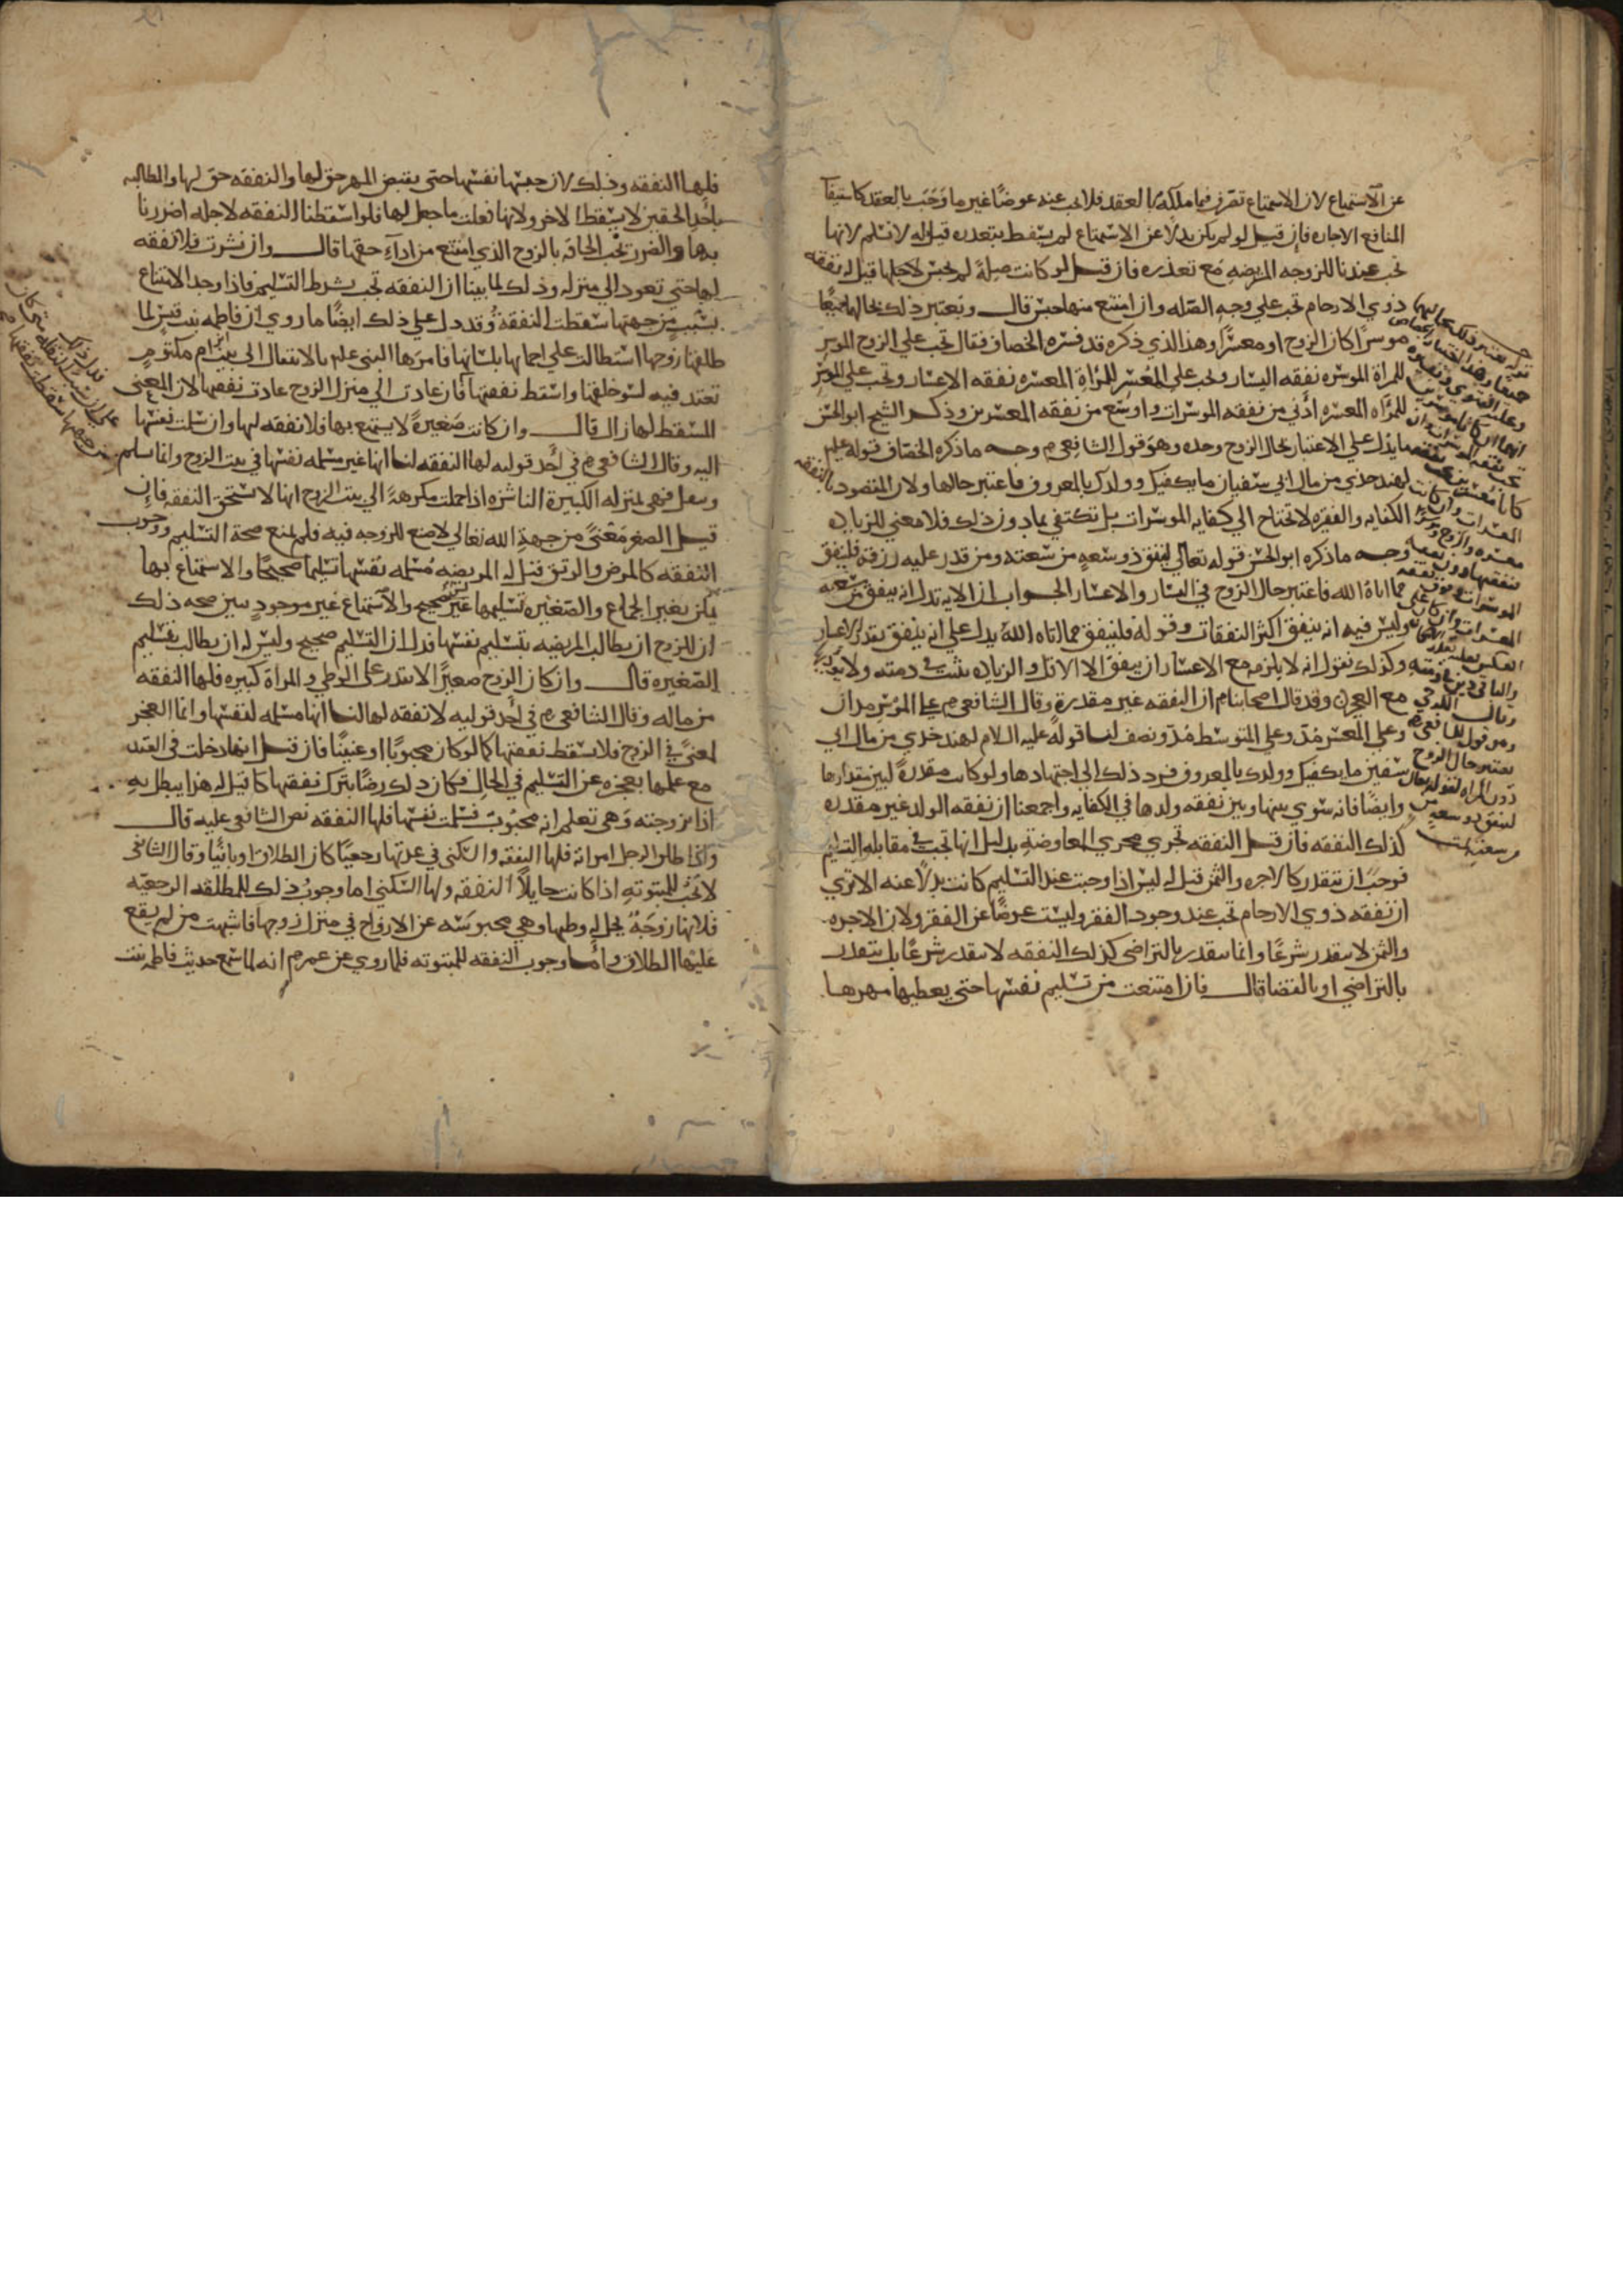 عن الاستمتاع لان الاستمتاع تصرف فيما ملكه بالعقد فلا يجب عنه عوضًا غير ما وجب بالعقد كاستيفآ
المنافع الاجاره فإن قيل لو لم يكن بدلًا عن الاستمتاع لم يسقط بتعذره قيل له لا نسلم لانها
تجب عندنا للزوجه المريضه مع تعذره فان قيل لو كانت صلةً لم يحبس لاجلها قيل له نفقه
ذوي الارحام تجب علي وجه الصله وان امتنع منها حبس قال ويعتبر ذلك بحالهما جميعًا
موسرًا كان الزوج او معسرًا وهذا الذي ذكره قد فسره الخصاف فقال تجب علي الزوج الموسر
للمراة الموسره نفقه اليسار وتجب علي المعسر للمراة المعسره نفقه الاعسار وتجب علي الموسر
للمراه المعسره ادني من نفقه الموسرات واوسع من نفقه المعسرين وذكر الشيخ ابو الحسن
ما يدل علي الاعتبار بحال الزوج وحده وهو قول الشافعي رم وجه ما ذكره الخصاف قوله علم
لهند خذي من مال ابي سفيان ما يكفيك وولدك بالمعروف فاعتبر حالها ولان المقصود بالنفقه
الكفايه والفقيره لا تحتاج الي كفايه الموسرات بل تكتفي بما دون ذلك فلا معني للزياده
وجه ما ذكره ابو الحسن قوله تعالي لينفق ذو سعه من سعته ومن قدر عليه رزقه فلينفق
مما اتاه الله فاعتبر حال الزوج في اليسار والاعسار الجواب ان الايه تدل انه ينفق من سعته
وليس فيه انه ينفق اكثر النفقات وقوله فلينفق مما اتاه الله يدل علي انه ينفق بقدر الاعسار
وكذلك نقول انه لا يلزمه مع الاعسار ان ينفق الا الاقل والزياده تثبت في ذمته ولا
مع العجز وقد قال اصحابنا رم ان النفقه غير مقدرة وقال الشافعي رم علي الموسر مدان
وعلي المعسر مدّ وعلي المتوسط مدّ ونصف لنا قوله عليه السلام لهند خذي من مال ابي
سفين ما يكفيك وولدك بالمعروف فرد ذلك الي اجتهادها ولو كانت مقدرةً لبين مقدارها
وايضًا فانه سوي بينها وبين نفقه ولدها في الكفايه واجمعنا ان نفقه الولد غير مقدره
كذلك النفقه فان قيل النفقه تجري مجري المعاوضة بدليل انها تجب في مقابله التسليم
فوجب ان تتقدر كالاجره والثمن قيل له ليس اذا وجبت عند التسليم كانت بدلًا عنه الا تري
ان نفقه ذوي الارحام تجب عند وجود الفقر وليست عوضًا عن الفقر ولان الاجره
والثمن لا يتقدر شرعًا وانما يتقدر بالتراضي كذلك النفقه لا يتقدر شرعًا بل يتقدر
بالتراضي او بالقضا قال فان امتنعت من تسليم نفسها حتي يعطيها مهرها
فلها النفقه وذلك لان حبسها نفسها حتي يقبض المهر حق لها والنفقه حق لها والمطالبه
باحد الحقين لا يسقط الاخر ولانها فعلت ما جعل لها فلو اسقطنا النفقه لاجله اضررنا
بها والضرر يجب الحاقه بالزوج الذي امتنع من ادآء حقها قال وان نشزت فلا نفقه
لها حتي تعود الي منزله وذلك لما بينا ان النفقه تجب بشرط التسليم فاذا وجد الامتناع
بسبب من جهتها سقطت النفقة وقد دل علي ذلك ايضًا ما روي ان فاطمه بنت قيس لما
طلقها زوجها استطالت علي احمائها بلسانها فامرها النبي علم بالانتقال الي بيت ابن ام مكتوم
تعتد فيه لسو خلقها واسقط نفقتها فان عادت الي منزل الزوج عادت نفقتها لان المعني
المسقط لها زال قال وان كانت صغيرةً لا يستمتع بها فلا نفقه لها وان سلمت نفسها
اليه وقال الشافعي رم في احد قوليه لها النفقه لنا انها غير مسلمه نفسها في بيت الزوج وانما سلم
وتنقل فهي بمنزله الكبيرة الناشزه اذا حملت مكرهةً الي بيت الزوج انها لا تستحق النفقه فإن
قيل الصغر معنًى من جهة الله تعالي لا صنع للزوجه فيه فلم يمنع صحة التسليم ووجوب
النفقه كالمرض والرتق قيل له المريضه مسلمه نفسها تسليمًا صحيحًا والاستمتاع بها
يمكن بغير الجماع والصغيره تسليمها غير صحيح والاستمتاع غير موجود يبين صحه ذلك
ان للزوج ان يطالب المريضه بتسليم نفسها فدل ان التسليم صحيح وليس له ان يطالب بتسليم
الصغيره قال وان كان الزوج صغيرًا لا يقدر علي الوطي والمراة كبيره فلها النفقه
من ماله وقال الشافعي رم في احد قوليه لا نفقه لها لنا انها مسلمه لنفسها وانما العجز
لمعنًى في الزوج فلا تسقط نفقتها كما لو كان مجبوبًا او عنينًا فان قيل انها دخلت في العقد
مع علمها بعجزه عن التسليم في الحال فكان ذلك رضًا بترك نفقتها كما قيل له هذا يبطل به
اذا تزوجته وهي تعلم انه مجبوب فسلمت نفسها فلها النفقه نص الشافعي عليه قال
واذا طلق الرجل امراته فلها النفقه والسكني في عدتها رجعيًا كان الطلاق او بائنًا وقال الشافعي
لا تجب للمبتوته اذا كانت حايلًا النفقه ولها السكني اما وجوب ذلك للمطلقه الرجعيه
فلانها زوجةٌ يحل له وطيها وهي محبوسه عن الازواج في منزل زوجها فاشبهت من لم يقع
عليها الطلاق واما وجوب النفقه للمبتوته فلما روي عن عمر رم انه لما سمع حديث فاطمه بنت